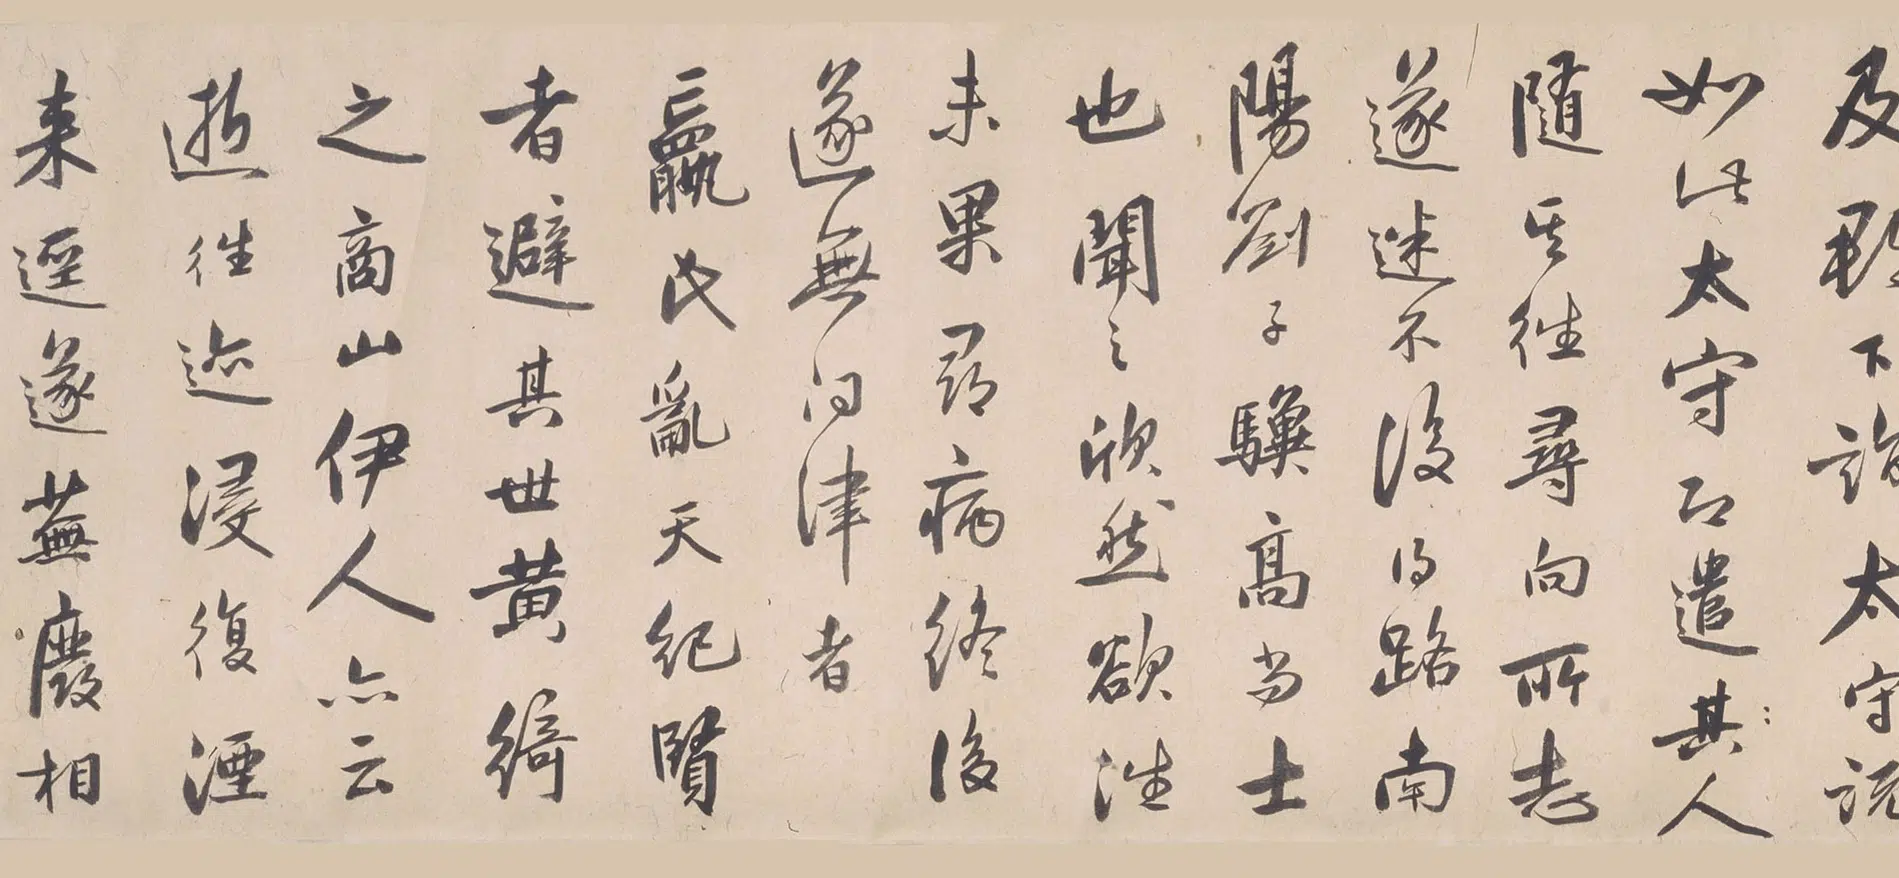 及郡下詣太守說
如此太守即遣其人
隨其往尋向所志
遂迷不復得路南
陽劉子驥高尚士
也聞之欣然欲往
未果尋病終後
遂無問津者
嬴氏亂天紀賢
者避其世黃綺
之商山伊人亦云
逝往迹浸復湮
来逕遂蕪廢相